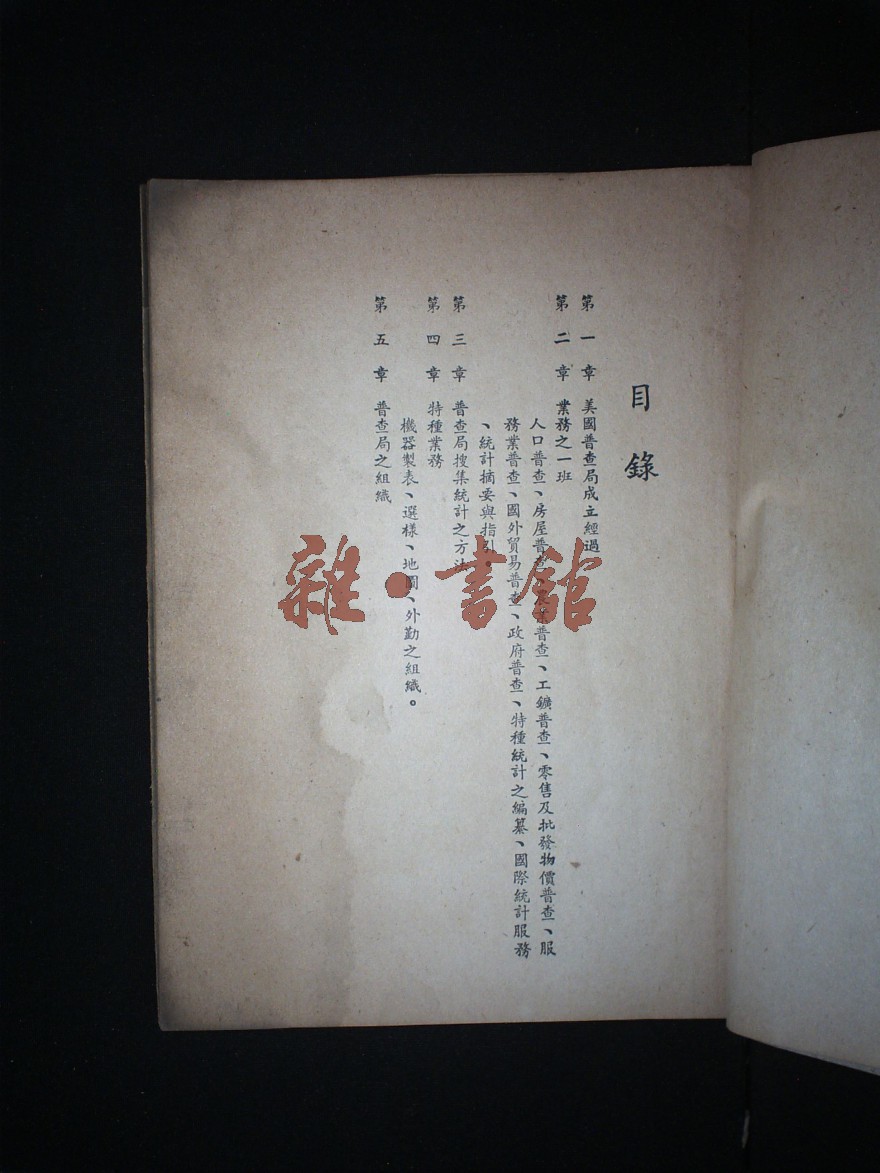 目錄
第一章 美國普查局成立經過
第二章 業務之一班
人口普查、房屋普查、農業普查、工鑛普查、零售及批發物價普查、服
務業普查、國外貿易普查、政府普查、特種統計之編纂、國際統計服務
、統計摘要與指引。
第三章 普查局搜集統計之方法
第四章 特種業務
機器製表、選樣、地圖、外勤之組織。
第五章 普查局之組織
雜·書館